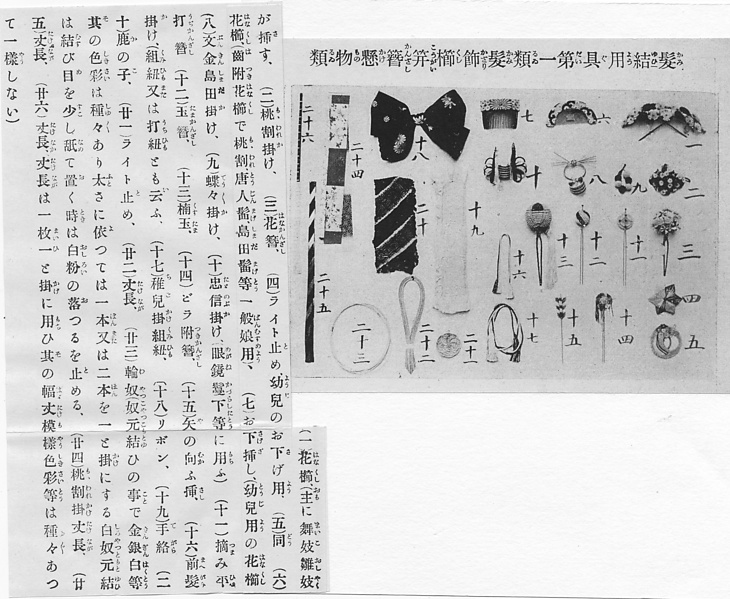 髮結用具第一類髮飾櫛笄簪懸物類
一
二
三
四
五
六
七
八
九
十
十一
十二
十三
十四
十五
十六
十七
十八
十九
二十
二十一
二十二
二十三
二十四
二十五
二十六
（一花櫛、主に舞妓雛妓
が挿す、（二）桃割掛け、（三）花簪、（四）ライト止め幼兒のお下げ用、（五）同（六）
花櫛（齒附花櫛で桃割唐人髷島田髷等一般娘用、（七）お下挿し、（幼兒用の花櫛
（八）文金島田掛け、（九）蝶々掛け、（十）忠信掛け、（眼鏡鬘下等に用ふ）（十一）摘み平
打簪（十二）玉簪、（十三）楠玉（十四）ビラ附簪、（十五）矢の向ふ挿、（十六）前髮
掛け、（組紐又は打紐とも云ふ、（十七）稚兒掛組紐、（十八）リボン、（十九）手絡（二
十鹿の子、（廿一）ライト止め、（廿二丈長、（廿三）輪奴（奴元結ひの事で金銀白等
其の色彩は種々あり太さに依つては一本又は二本を一と掛にする白奴元結
は結び目を少し舐て置く時は白粉の落つるを止める、（廿四）桃割掛丈長、（廿
五）丈長、（廿六）丈長、丈長は一枚一と掛に用ひ其の幅丈模樣色彩等は種々あつ
て一樣しない）